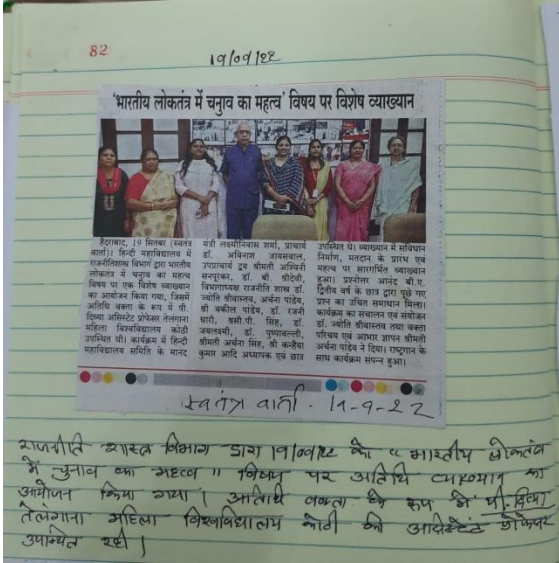 82
19/09/22
'भारतीय लोकतंत्र में चुनाव का महत्व' विषय पर विशेष व्याख्यान
हैदराबाद, 19 सितंबर (स्वतंत्र
वार्ता)। हिन्दी महाविद्यालय में
राजनीतिशास्त्र विभाग द्वारा भारतीय
लोकतंत्र में चुनाव का महत्व
विषय पर एक विशेष व्याख्यान
का आयोजन किया गया, जिसमें
अतिथि वक्ता के रूप में पी.
दिव्या असिस्टेंट प्रोफेसर तेलंगाना
महिला विश्वविद्यालय कोठी
उपस्थित थी। कार्यक्रम में हिन्दी
महाविद्यालय समिति के मानद
मंत्री लक्ष्मीनिवास शर्मा, प्राचार्य
डॉ. अविनाश जायसवाल,
उपप्राचार्य द्वय श्रीमती अश्विनी
सनपूरकर, डॉ. बी. श्रीदेवी,
विभागाध्यक्ष राजनीति शास्त्र डॉ.
ज्योति श्रीवास्तव, अर्चना पांडेय,
श्री वकील पांडेय, डॉ. रजनी
धारी, डॉ. सिंह, डॉ.
जयलक्ष्मी, डॉ. पुष्पावल्ली,
श्रीमती अर्चना सिंह, श्री कन्हैया
कुमार आदि अध्यापक एवं छात्र
उपस्थित थे। व्याख्यान में संविधान
निर्माण, मतदान के प्रारंभ एवं
महत्व पर सारगर्भित व्याख्यान
हुआ। प्रश्नोत्तर आनंद बी.ए.
द्वितीय वर्ष के छात्र द्वारा पूछे गए
प्रश्न का उचित समाधान मिला।
कार्यक्रम का संचालन एवं संयोजन
डॉ. ज्योति श्रीवास्तव तथा वक्ता
परिचय एवं आभार ज्ञापन श्रीमती
अर्चना पांडेय ने दिया। राष्ट्रगान के
साथ कार्यक्रम संपन्न हुआ।
स्वतंत्र वार्ता - 19-9-22
राजनीति शास्त्र विभाग द्वारा 19/09/22 को "भारतीय लोकतंत्र
में चुनाव का महत्व" विषय पर अतिथि व्याख्यान का
आयोजन किया गया। अतिथि वक्ता के रूप में पी. दिव्या
तेलंगाना महिला विश्वविद्यालय कोठी की असिस्टेंट प्रोफेसर
उपस्थित रही।